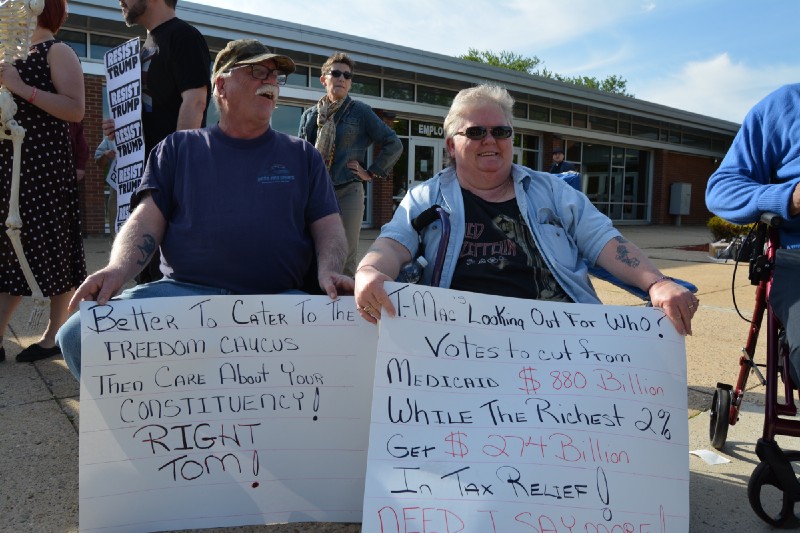 RESIST
TRUMP
RESIST
TRUMP
RESIST
TRUMP
RESIST
TRUMP
RESIST
TRUMP
EMPLO
LED
ZEPPELIN
Better To Cater To The
FREEDOM CHUCUS
Then Care About Your
CONSTITUENCY!
RIGHT
TOM!
T-Mac "Looking Out For Who?
Votes to cut from
Medicaid $ 880 Billion
While The Richest 2%
Get $ 274 Billion
In Tax Relief!
NEED I SAY MORE!